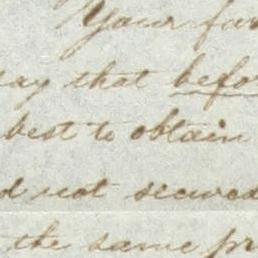 Your fav
say that befo
best to obtain
d not secured
the same pr